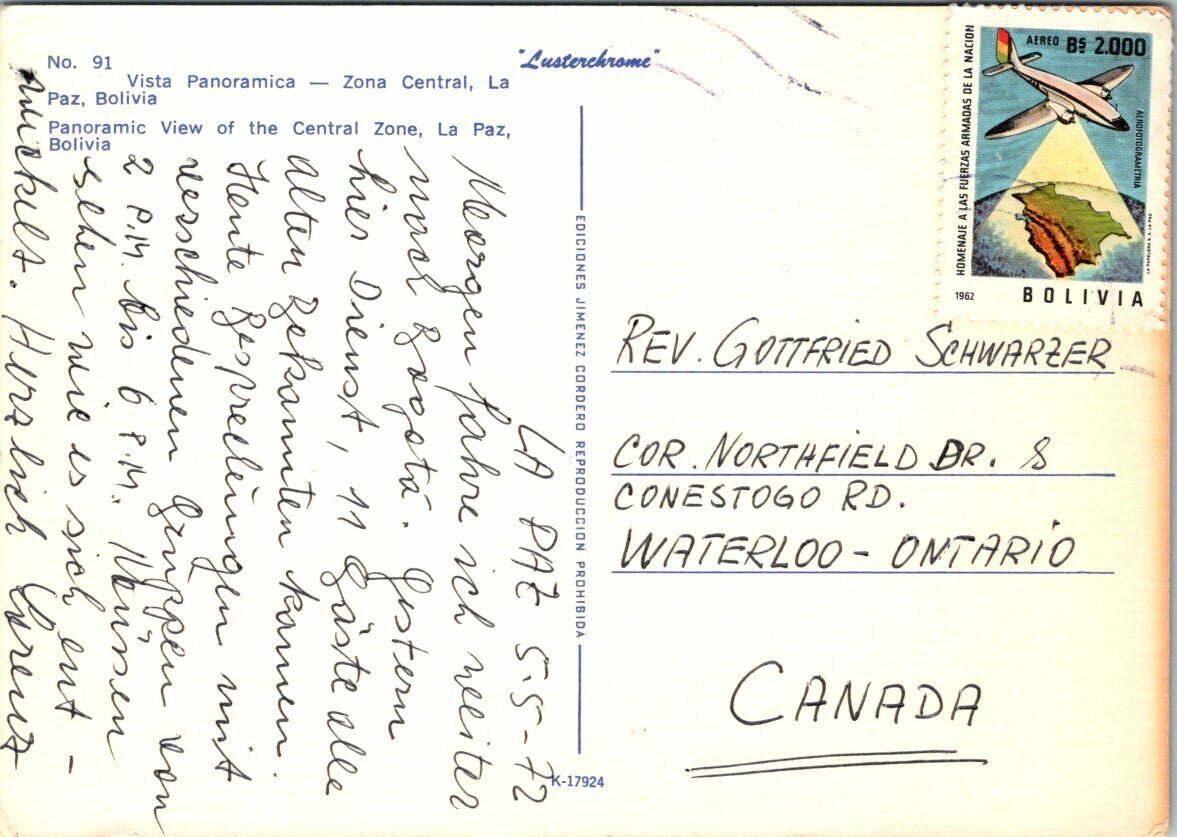 No. 91
Vista Panoramica — Zona Central, La
Paz, Bolivia
Panoramic View of the Central Zone, La Paz,
Bolivia
"Lusterchrome"
EDICIONES JIMENEZ CORDERO REPRODUCCION PROHIBIDA
K-17924
LA PAZ 5-5-72
Morgen fahre ich weiter
nach Bogotá. Gestern
hier Dienst, 11 Gäste alle
alten Bekannten kamen.
Heute Besprechungen mit
verschiedenen Gruppen von
2 P.M. bis 6 P.M. Müssen
sehen wie es sich ent-
wickelt. Herzlich Lorenz
HOMENAJE A LAS FUERZAS ARMADAS DE LA NACION
AEREO Bs 2.000
AEROFOTOGRAMETRIA
LA PAPELERA S. A. LA PAZ
1962
BOLIVIA
REV. GOTTFRIED SCHWARZER
COR. NORTHFIELD DR. &
CONESTOGO RD.
WATERLOO - ONTARIO
CANADA